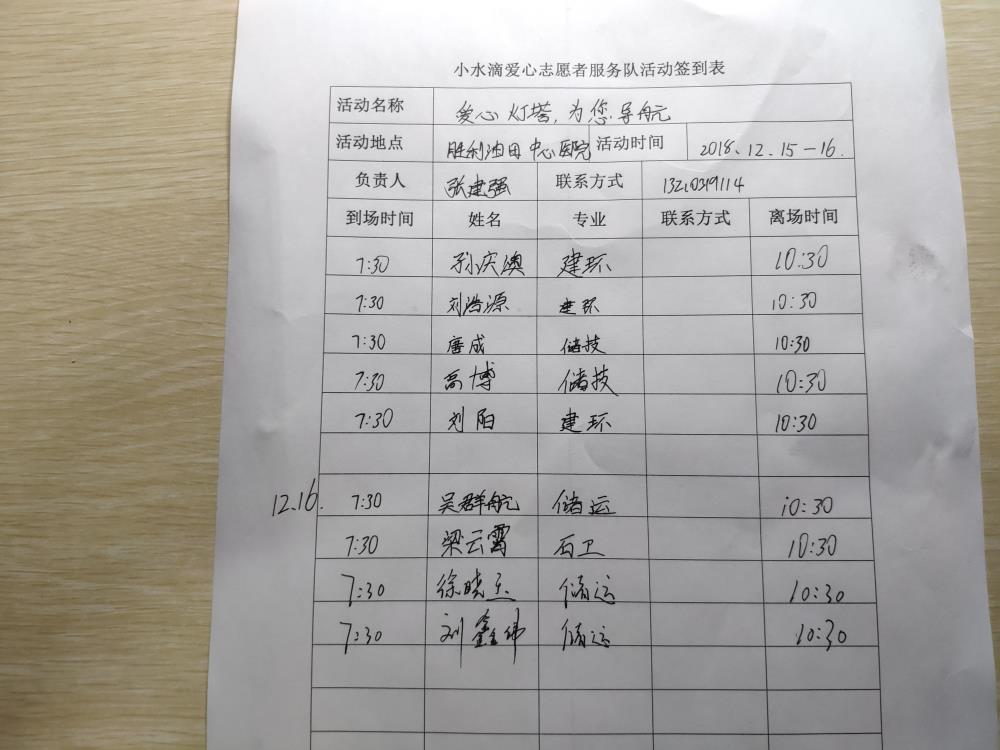 小水滴爱心志愿者服务队活动签到表
活动名称 爱心灯塔,为您导航
活动地点 胜利油田中心医院 活动时间 2018.12.15-16.
负责人 张建强 联系方式 13210319114
到场时间 姓名 专业 联系方式 离场时间
7:30 孙庆澳 建环 10:30
7:30 刘浩源 建环 10:30
7:30 唐成 储技 10:30
7:30 高博 储技 10:30
7:30 刘阳 建环 10:30
12.16. 7:30 吴群航 储运 10:30
7:30 梁云霄 石卫 10:30
7:30 徐晓 储运 10:30
7:30 刘鑫伟 储运 10:30